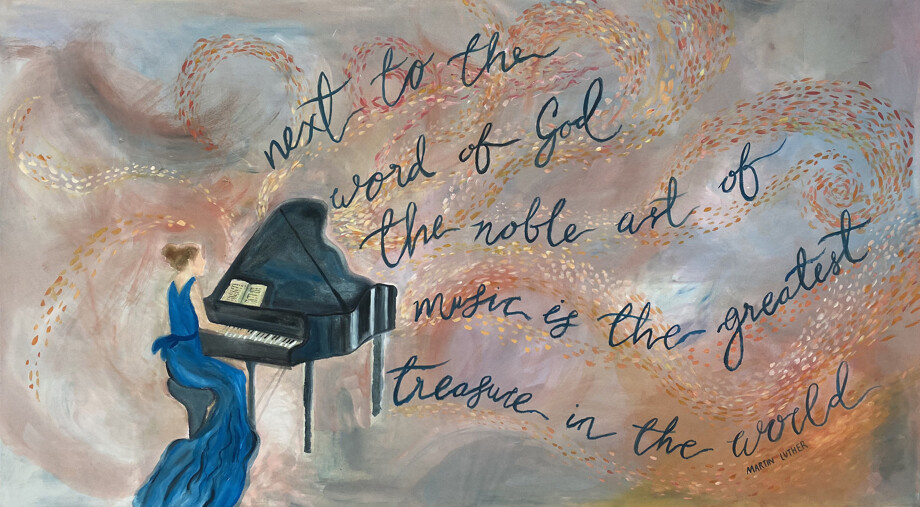 next to the
word of God
the noble art of
music is the greatest
treasure in the world
MARTIN LUTHER